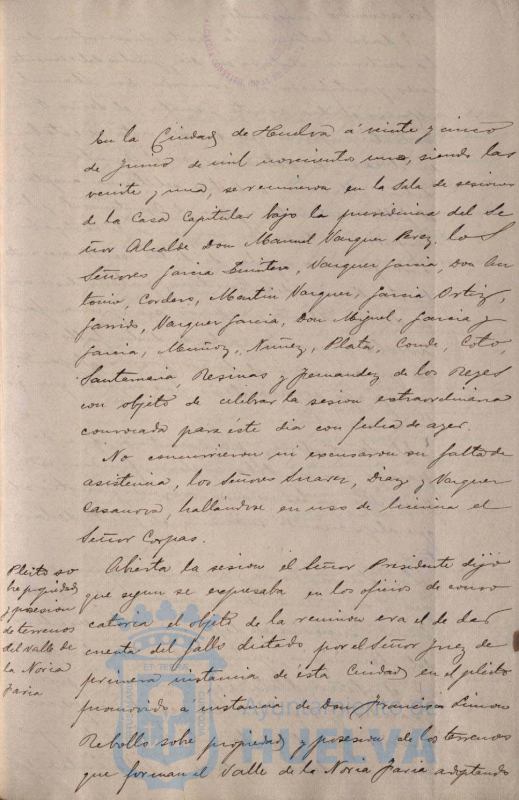 En la Ciudad de Huelva á veinte y cinco
de Junio de mil novecientos uno, siendo las
veinte y una, se reunieron en la Sala de sesiones
de la Casa Capitular bajo la presidencia del Se
ñor Alcalde Don Manuel Vazquez Perez, los
Señores Garcia Quintero, Vazquez Garcia, Don An
tonio, Cordero, Martin Vazquez, Garcia Ortiz,
Garrido, Vazquez Garcia, Don Miguel, Garcia y
Garcia, Muñoz, Nuñez, Plata, Conde, Coto,
Santamaria, Resinas y Fernandez de los Reyes
con objeto de celebrar la sesion extraordinaria
convocada para este dia con fecha de ayer.
No concurrieron ni excusaron su falta de
asistencia, los Señores Suarez, Diaz y Vazquez
Casanova, hallándose en uso de licencia el
Señor Corpas.
Pleito so
bre propiedad
y posesion
de terrenos
del Valle de
la Noria
Faria
Abierta la sesion el Señor Presidente dijo
que segun se expresaba en los oficios de convo
catoria el objeto de la reunion era el de dar
cuenta del fallo dictado por el Señor Juez de
primera instancia de esta Ciudad en el pleito
promovido a instancia de Don Francisco Limon
Rebollo sobre propiedad y posesion de los terrenos
que forman el Valle de la Noria Faria adoptando
Ayuntamiento de
HUELVA